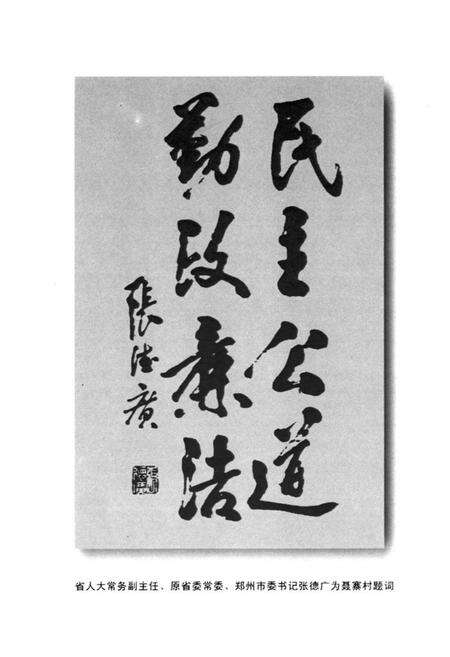 民主公道
勤政廉洁
張德廣
省人大常务副主任、原省委常委、郑州市委书记张德广为聂寨村题词